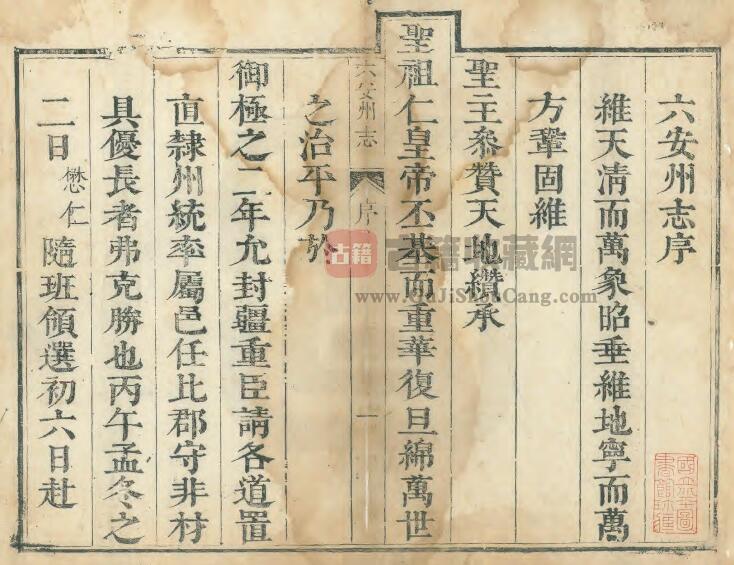 六安州志序
維天清而萬象昭垂維地寧而萬
方鞏固維
聖主叅贊天地纘承
聖祖仁皇帝丕基而重華復旦綿萬世
六安州志 序 一
之治平乃於
御極之二年允封疆重臣請各道置
直隸州統率屬邑任比郡守非材
具優長者弗克勝也丙午孟冬之
二日懋仁隨班領選初六日赴
古籍
古籍收藏網
www.GuJiShouCang.com